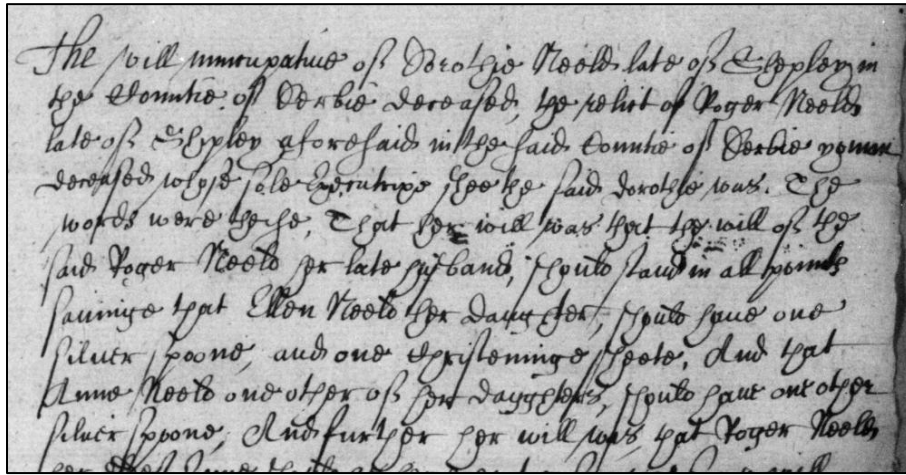 The will nuncupative of Dorothie Neeld late of Shipley in
the Countie of Derbie deceased, the relict of Roger Neeld
late of Shipley aforesaid in the said Countie of Derbie yoman
deceased whose sole Executrix shee the said dorothie was. The
words were theise, That her will was that the will of the
said Roger Neeld her late husband, should stand in all points
savinge that Ellen Neeld her daughter, should have one
silver spoone, and one Christeninge sheete, And that
Anne Neeld one other of her daughters, should have one other
silver spoone, And further her will was, that Roger Neeld